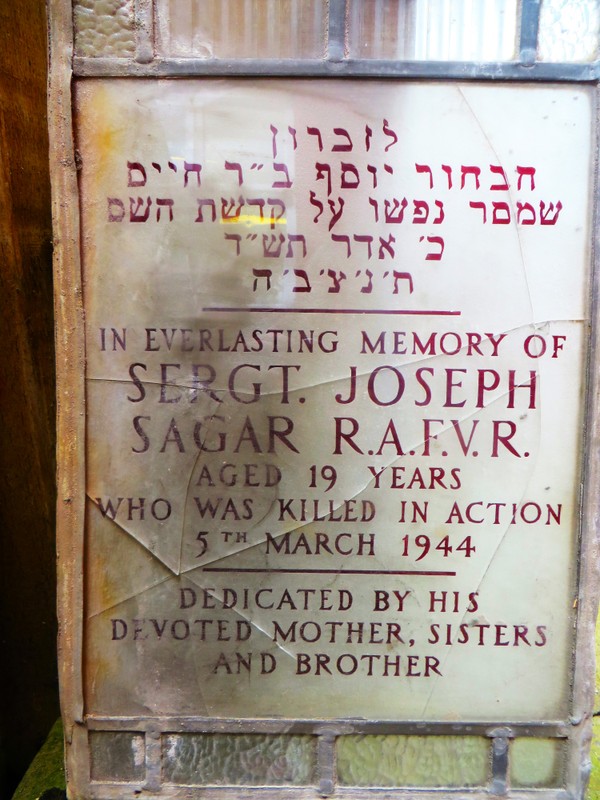 לזכרון
הבחור יוסף ב״ר חיים
שמסר נפשו על קדשת השם
כ׳ אדר תש״ד
ת׳נ׳צ׳ב׳ה
IN EVERLASTING MEMORY OF
SERGT. JOSEPH
SAGAR R.A.F.V.R.
AGED 19 YEARS
WHO WAS KILLED IN ACTION
5TH MARCH 1944
DEDICATED BY HIS
DEVOTED MOTHER, SISTERS
AND BROTHER